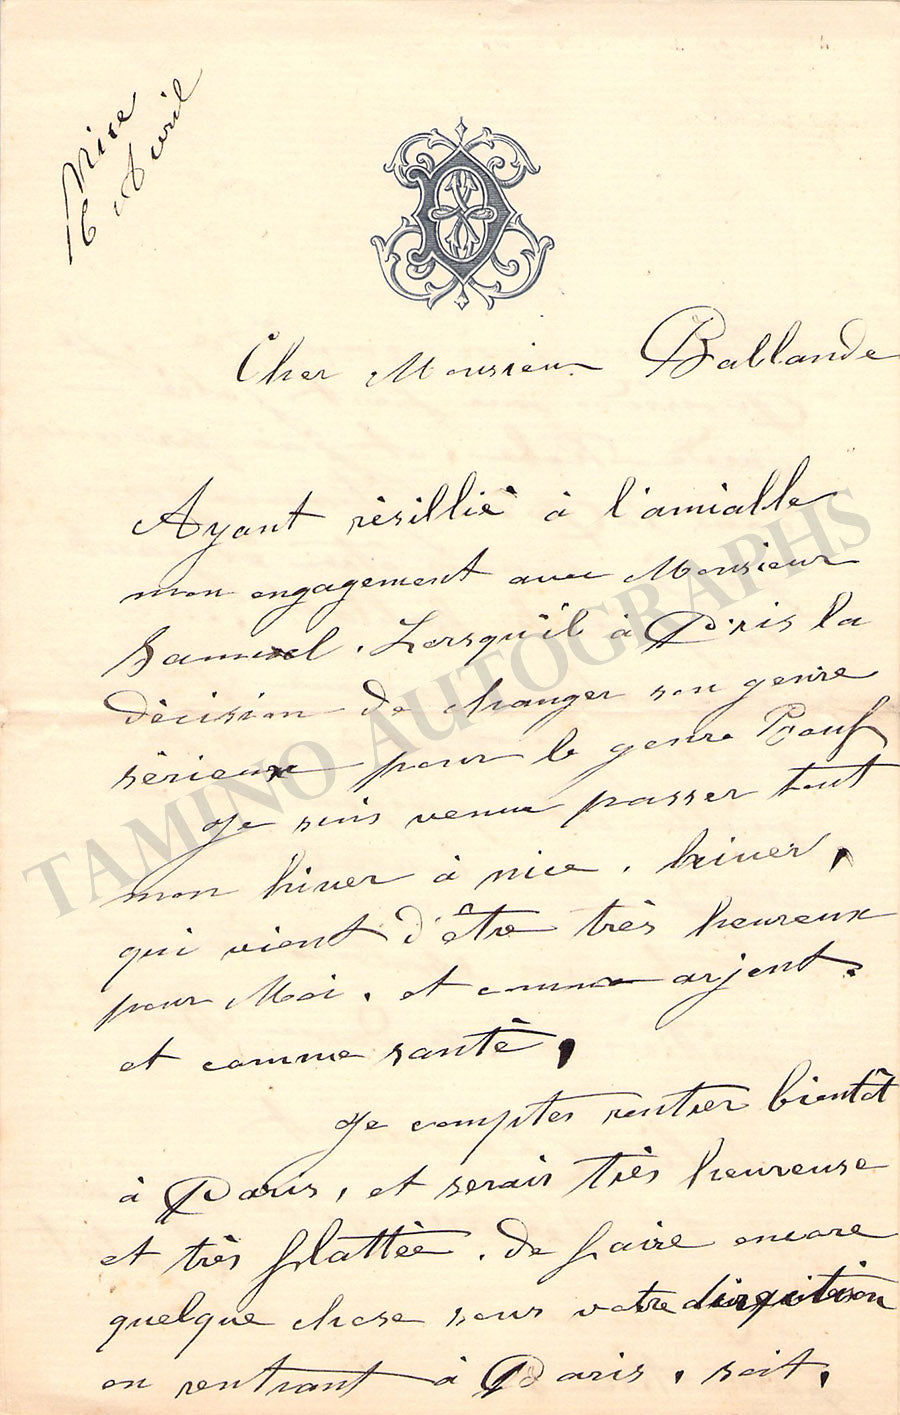 Nice
16 Avril
Cher Monsieur Ballande
Ayant résillié à l'amialle
mon engagement avec Monsieur
Samuel. Lorsqu'il à Pris la
décision de changer son genre
sérieux pour le genre Bouf
Je suis venue passer tout
mon hiver à nice. hiver,
qui vient d'être très heureux
pour Moi. et comme arjent.
et comme santé,
Je comptes rentrer bientôt
à Paris, et serais très heureuse
et très flattée. de faire encore
quelque chose sous votre
en rentrant à Paris. soit,
TAMINO AUTOGRAPHS